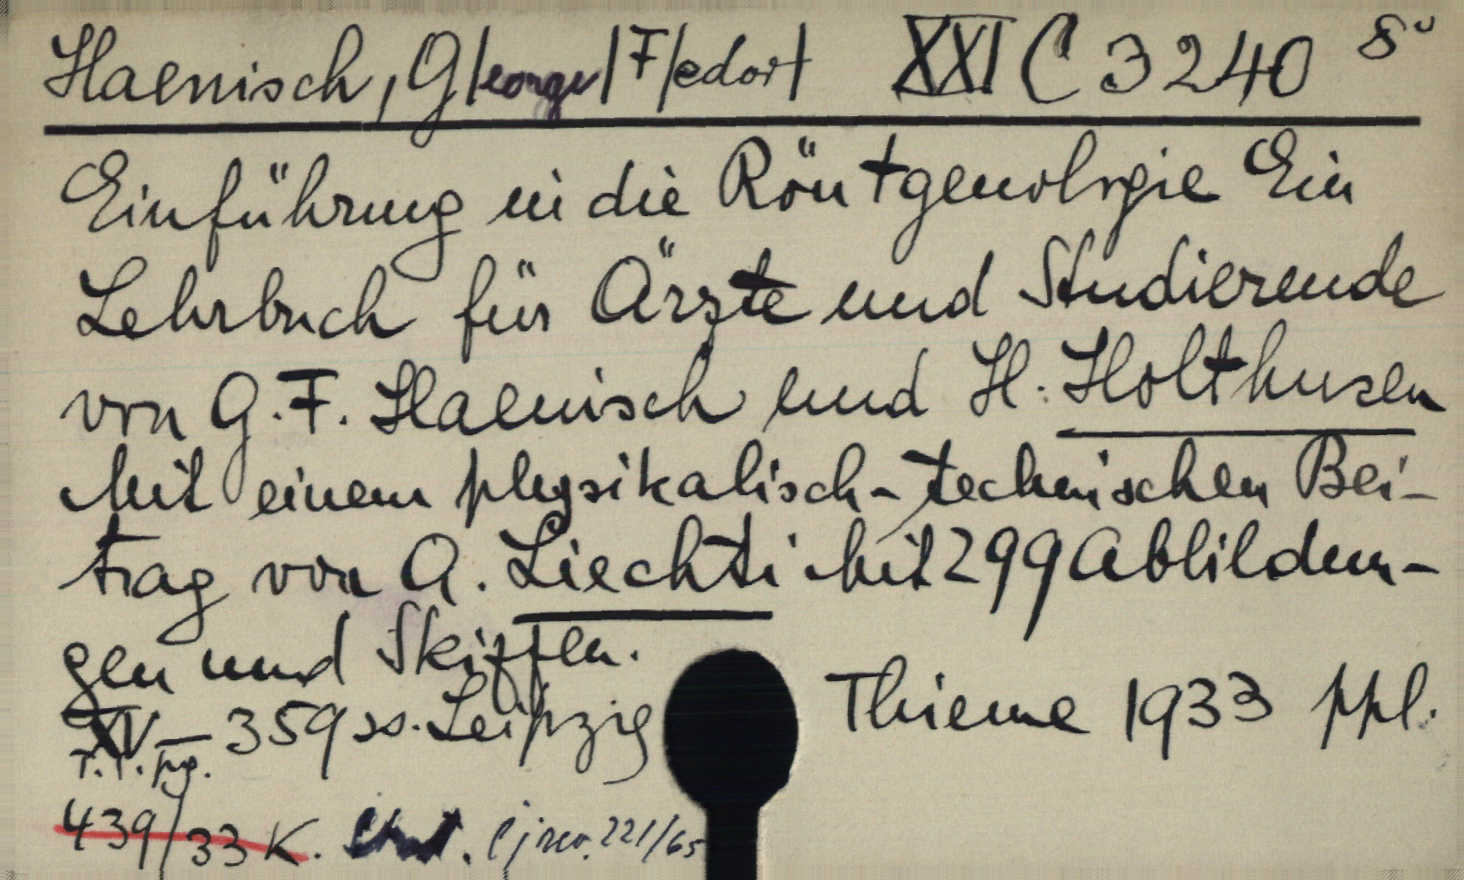 Haenisch, G/eorge/ F/edor/ XXI C 3240 8°
Einführung in die Röntgenologie Ein
Lehrbuch für Ärzte und Studierende
von G. F. Haenisch und H. Holthusen
Mit einem physikalisch-technischen Bei-
trag von A. Liechti Mit 299 Abbildun-
gen und Skizzen.
XV-359 ss. Leipzig Thieme 1933 ppl.
T.T. pg.
439/33 K. 221/65